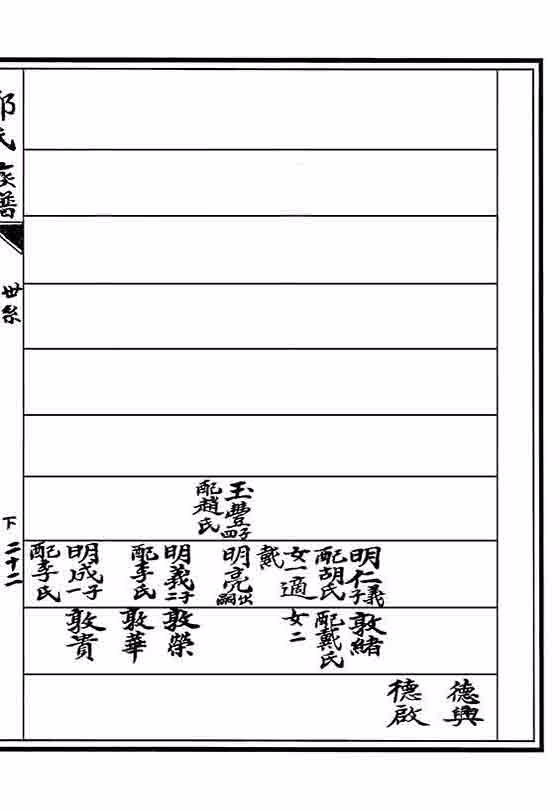 玉豐四子
配趙氏
明仁義子
配胡氏
女一適
戴
明亮出嗣
明義二子
配李氏
明成一子
配李氏
敦緒
配戴氏
女二
敦榮
敦華
敦貴
德興
德啟
氏族譜
世系
下 二十二